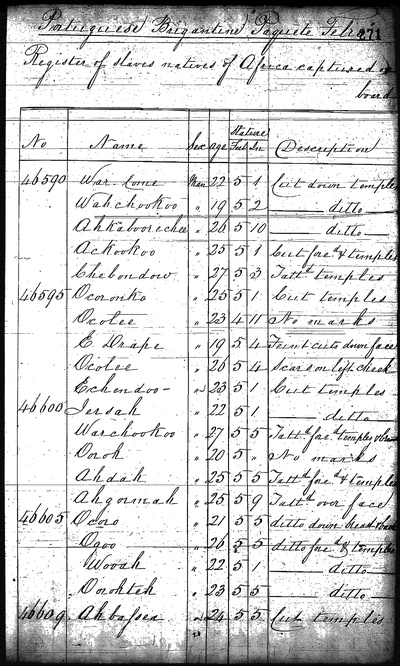 Portuguese Brigantine "Paquete Feliz" 471
Register of slaves natives of Africa captured on
board
Stature
No Name Sex age Feet In Description
46590 War. Come Man 22 5 1 Cut down temples
Wahchookoo " 19 5 2 ditto
Ahkaboorechee " 26 5 10 ditto
Ackookoo " 25 5 1 Cut fore'd & temples
Chebondow " 27 5 3 Tatt'd temples
46595 Ocoronko " 25 5 1 Cut temples
Ocolee " 23 4 11 No marks
E Drape " 19 5 4 Faint cuts down face
Ocolee " 26 5 4 Scars on left cheek
Echendoo " 23 5 1 Cut temples
46600 Jersah " 22 5 1 ditto
Warchookoo " 27 5 5 Tatt'd fore'd temples &
Oroh " 20 5 " No marks
Ahdah " 25 5 5 Tatt'd fore'd & temples
Ahgormah " 25 5 9 Tatt'd over face
46605 Ocoro " 21 5 5 ditto down breast &
Oroo " 26 5 5 ditto fore'd & temples
Wooah " 22 5 1 ditto
Orohteh " 23 5 5 ditto
46609 Ahbassea " 24 5 5 Cut temples